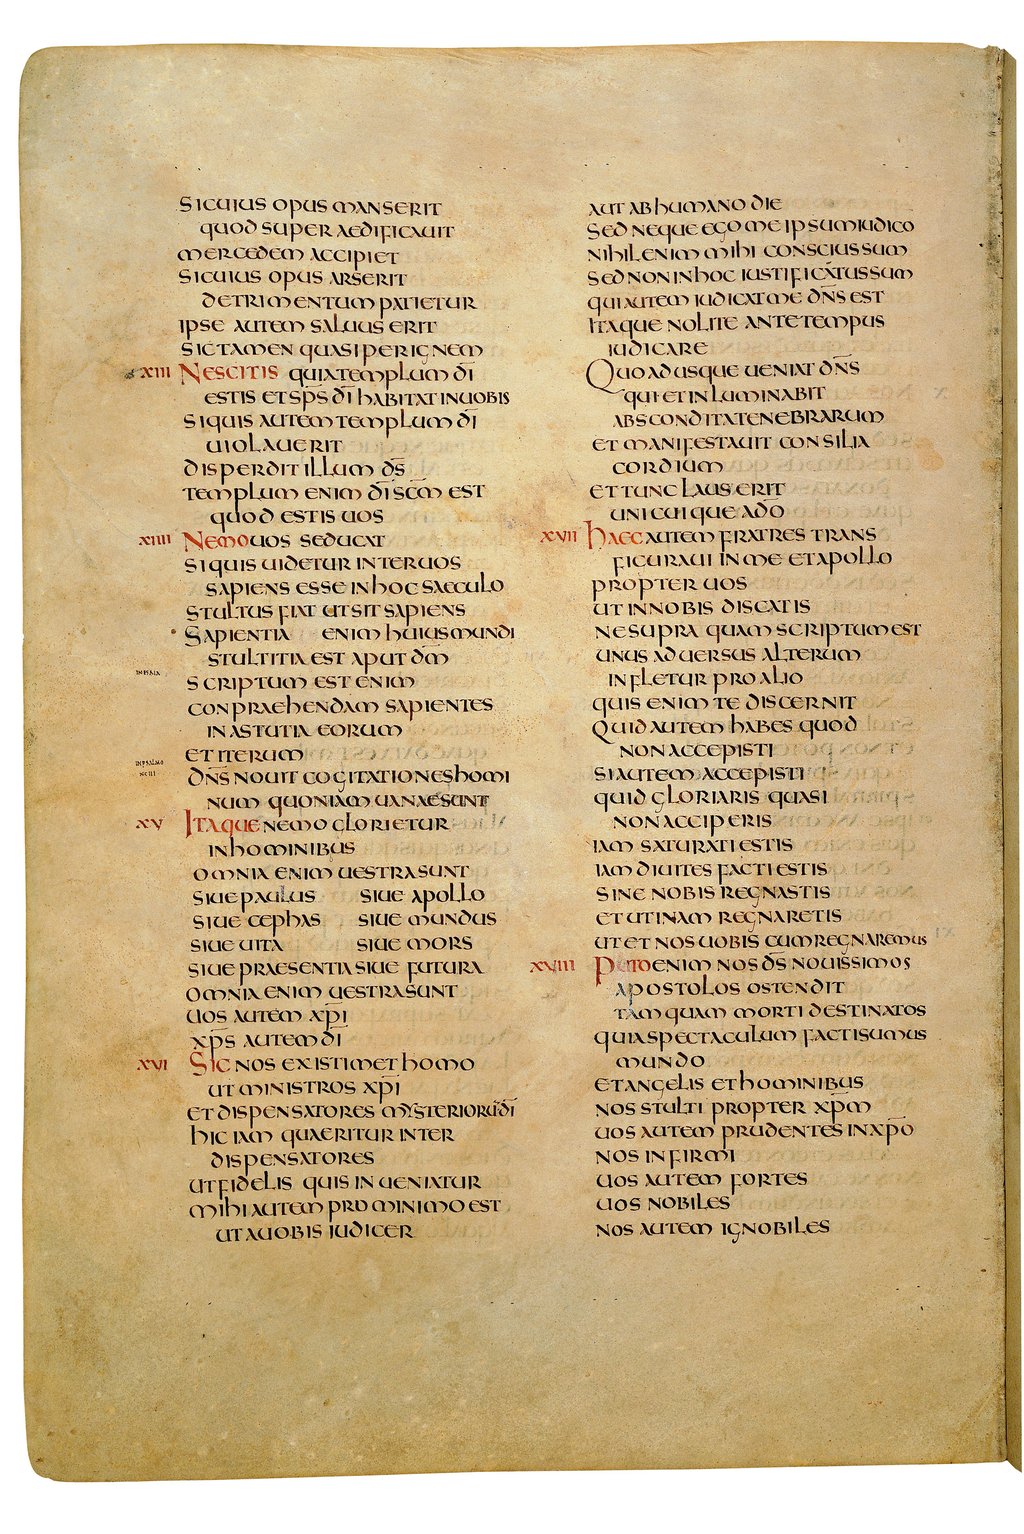 SICUIUS OPUS MANSERIT
QUOD SUPER AEDIFICAUIT
MERCEDEM ACCIPIET
SICUIUS OPUS ARSERIT
DETRIMENTUM PATIETUR
IPSE AUTEM SALUUS ERIT
SIC TAMEN QUASI PER IGNEM
XIII NESCITIS QUIA TEMPLUM DĪ
ESTIS ET SP̄S DĪ HABITAT IN UOBIS
SI QUIS AUTEM TEMPLUM DĪ
UIOLAUERIT
DISPERDIT ILLUM D̄S
TEMPLUM ENIM DĪ SC̄M EST
QUOD ESTIS UOS
XIIII NEMO UOS SEDUCAT
SI QUIS UIDETUR INTER UOS
SAPIENS ESSE IN HOC SAECULO
STULTUS FIAT UT SIT SAPIENS
SAPIENTIA ENIM HUIUS MUNDI
STULTITIA EST APUT D̄M
SCRIPTUM EST ENIM
CONPRAEHENDAM SAPIENTES
IN ASTUTIA EORUM
ET ITERUM
IN PSALMO
XCIII
DN̄S NOUIT COGITATIONES HOMI
NUM QUONIAM UANAE SUNT
XV ITAQUE NEMO GLORIETUR
IN HOMINIBUS
OMNIA ENIM UESTRA SUNT
SIUE PAULUS SIUE APOLLO
SIUE CEPHAS SIUE MUNDUS
SIUE UITA SIUE MORS
SIUE PRAESENTIA SIUE FUTURA
OMNIA ENIM UESTRA SUNT
UOS AUTEM XP̄I
XP̄S AUTEM DĪ
XVI SIC NOS EXISTIMET HOMO
UT MINISTROS XP̄I
ET DISPENSATORES MYSTERIORŪ DĪ
HIC IAM QUAERITUR INTER
DISPENSATORES
UT FIDELIS QUIS INUENIATUR
MIHI AUTEM PRO MINIMO EST
UT A UOBIS IUDICER
AUT AB HUMANO DIE
SED NEQUE EGO ME IPSUM IUDICO
NIHIL ENIM MIHI CONSCIUS SUM
SED NON IN HOC IUSTIFICATUS SUM
QUI AUTEM IUDICAT ME DN̄S EST
ITAQUE NOLITE ANTE TEMPUS
IUDICARE
QUO ADUSQUE UENIAT DN̄S
QUI ET INLUMINABIT
ABSCONDITA TENEBRARUM
ET MANIFESTAUIT CONSILIA
CORDIUM
ET TUNC LAUS ERIT
UNICUIQUE A DŌ
XVII HAEC AUTEM FRATRES TRANS
FIGURAUI IN ME ET APOLLO
PROPTER UOS
UT IN NOBIS DISCATIS
NE SUPRA QUAM SCRIPTUM EST
UNUS ADUERSUS ALTERUM
INFLETUR PRO ALIO
QUIS ENIM TE DISCERNIT
QUID AUTEM HABES QUOD
NON ACCEPISTI
SI AUTEM ACCEPISTI
QUID GLORIARIS QUASI
NON ACCIPERIS
IAM SATURATI ESTIS
IAM DIUITES FACTI ESTIS
SINE NOBIS REGNASTIS
ET UTINAM REGNARETIS
UT ET NOS UOBISCUM REGNAREMUS
XXIII PUTO ENIM NOS D̄S NOUISSIMOS
APOSTOLOS OSTENDIT
TAMQUAM MORTI DESTINATOS
QUIA SPECTACULUM FACTI SUMUS
MUNDO
ET ANGELIS ET HOMINIBUS
NOS STULTI PROPTER XP̄M
UOS AUTEM PRUDENTES IN XP̄O
NOS INFIRMI
UOS AUTEM FORTES
UOS NOBILES
NOS AUTEM IGNOBILES